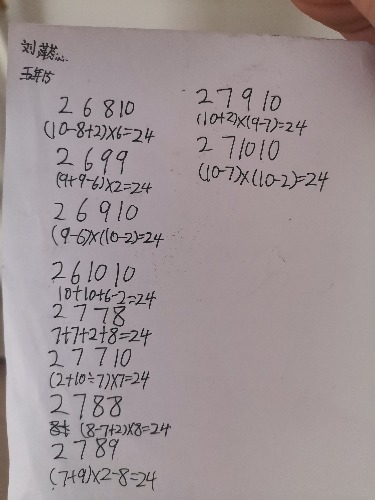 刘蕊
五年15
2 6 8 10
(10-8+2)×6=24
2 6 9 9
(9+9-6)×2=24
2 6 9 10
(9-6)×(10-2)=24
2 6 10 10
10+10+6-2=24
2 7 7 8
7+7+2+8=24
2 7 7 10
(2+10÷7)×7=24
2 7 8 8
(8-7+2)×8=24
2 7 8 9
(7+9)×2-8=24
2 7 9 10
(10+2)×(9-7)=24
2 7 10 10
(10-7)×(10-2)=24